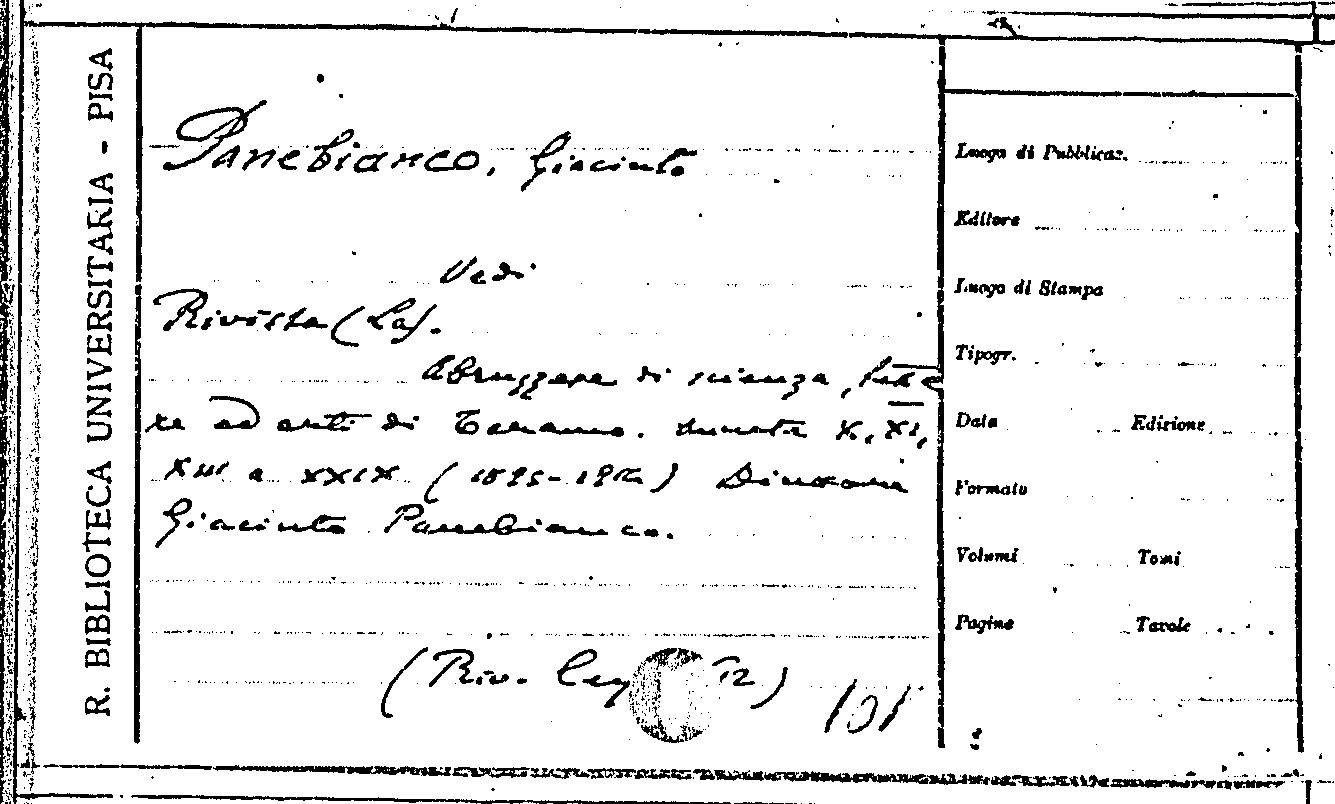 R. BIBLIOTECA UNIVERSITARIA - PISA
Panebianco, Giacinto
Vedi
Rivista (La).
Abruzzese di scienza, lette
re ed arti di Teramo. Annata X, XI,
XIII a XXIX (1895-19 ) Direttore
Giacinto Panebianco.
(Riv. Leg 72)
101
Luogo di Pubblicaz.
Editore
Luogo di Stampa
Tipogr.
Data Edizione
Formato
Volumi Tomi
Pagine Tavole